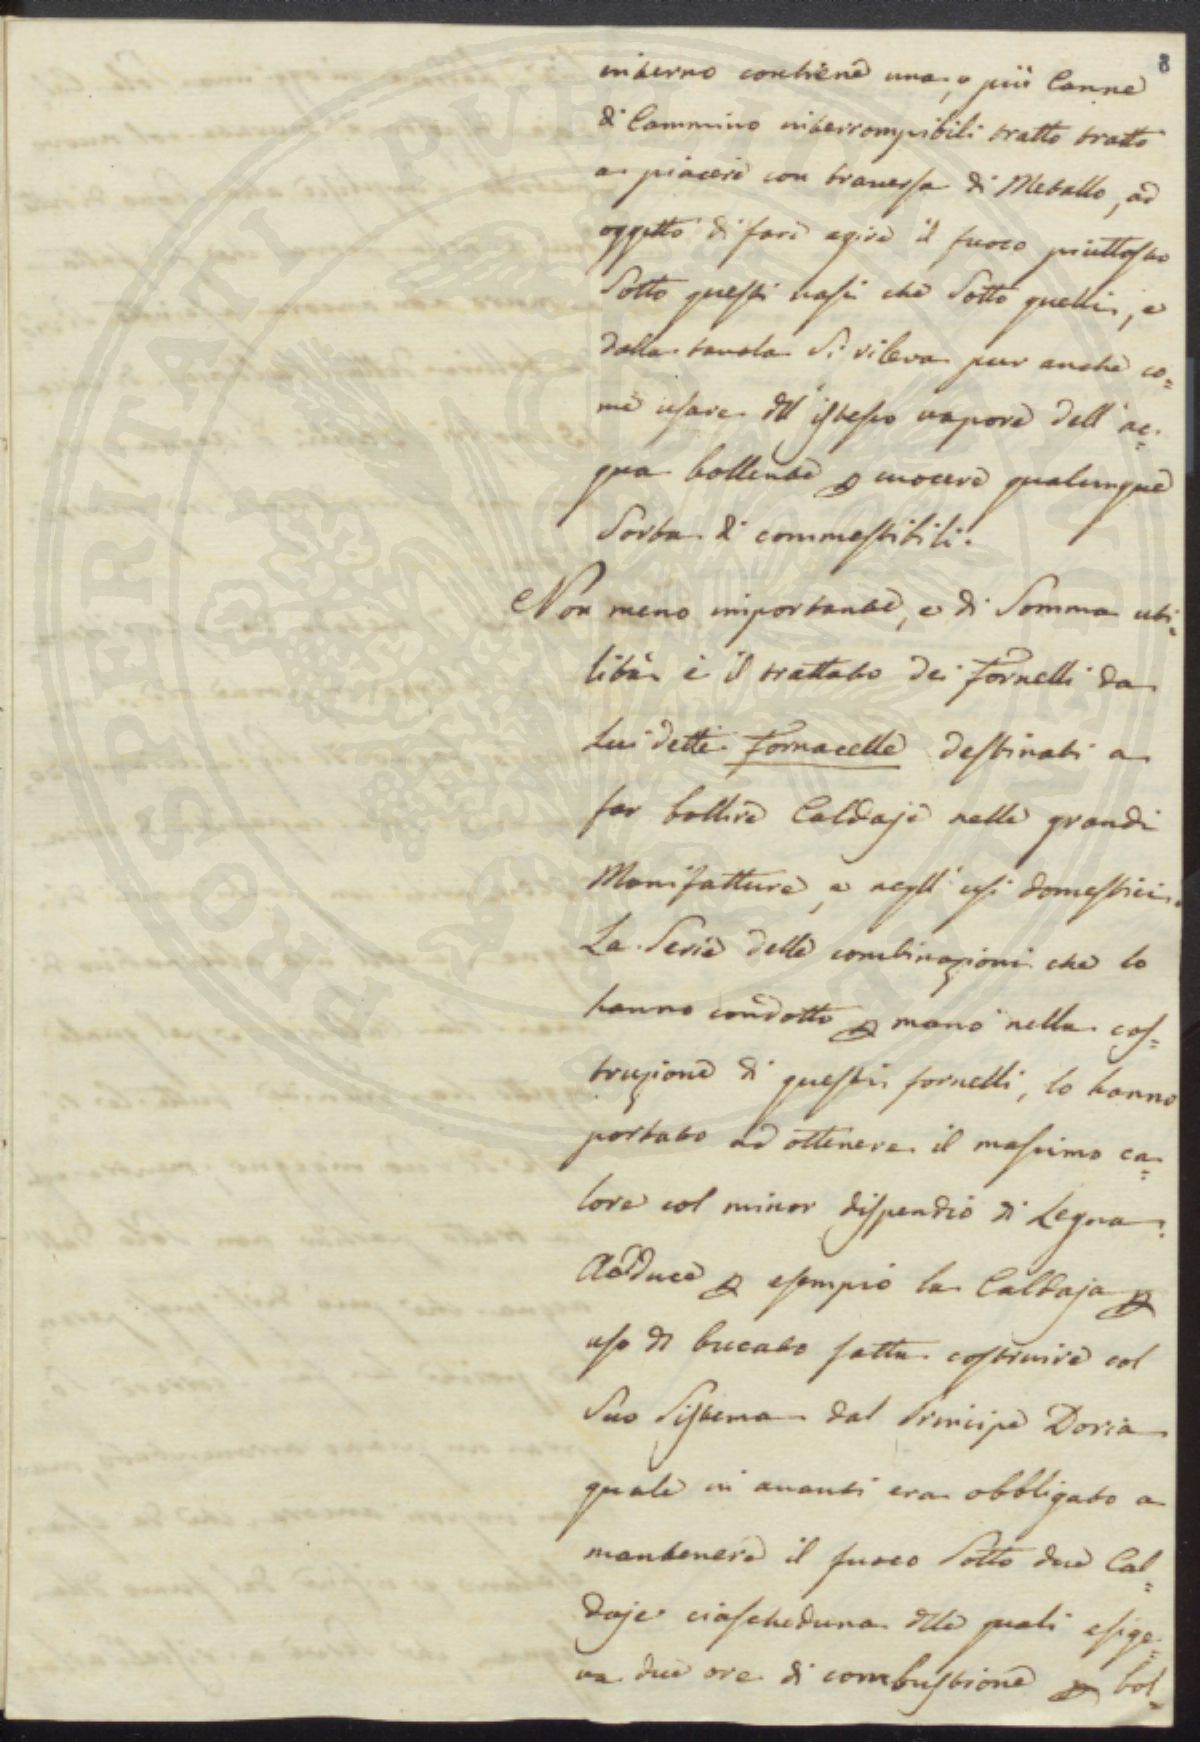 8
interno contiene una, o più Canne
di Cammino interrompibili tratto tratto
a piacere con traversa di Metallo, ad
oggetto di fare agire il fuoco piuttosto
Sotto questi vasi che Sotto quelli, e
dalla tavola Si rileva pur anche co=
me usare dell'istesso vapore dell'ac=
qua bollente p cuocere qualunque
Sorta di commestibili.
Non meno importante, e di Somma uti=
lità è il trattato dei Fornelli da
Lui detti Fornacelle destinati a
far bollire Caldaje nelle grandi
Manifatture, e negli usi domestici.
La Serie delle combinazioni che lo
hanno condotto p mano nella cos=
truzione di questi fornelli, lo hanno
portato ad ottenere il massimo ca=
lore col minor dispendio di Legna.
Adduce p esempio la Caldaja p
uso di bucato fatta costruire col
Suo Sistema dal Principe Doria
quale in avanti era obbligato a
mantenere il fuoco Sotto due Cal=
daje ciascheduna delle quali esige=
va due ore di combustione p bol=
PROSPERITATI PUBLICAE AUGENDAE